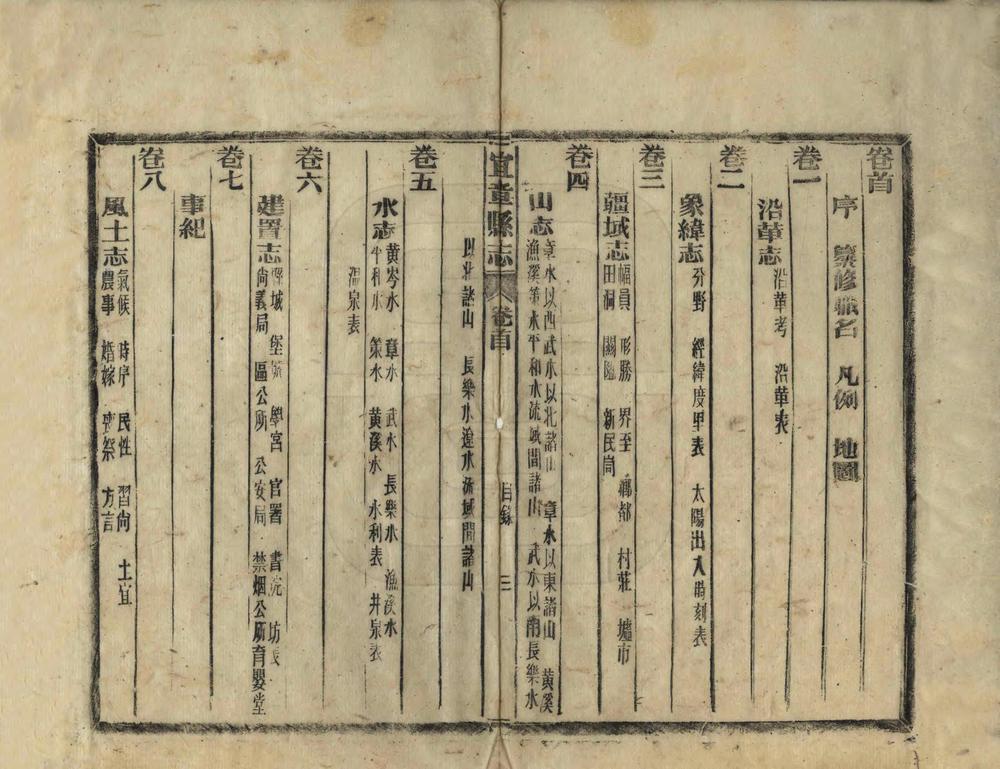 卷首
序　纂修職名　凡例　地圖
卷一
沿革志　沿革考　沿革表
卷二
象緯志　分野　經緯度里表　太陽出入時刻表
卷三
疆域志　幅員　形勝　界至　鄉都　村莊　墟市
田洞　關隘　新民峒
卷四
山志　章水以西武水以北諸山　章水以東諸山　黃溪
漁溪策水平和水流域間諸山　武水以南長樂水
宜章縣志　卷首　目錄　三
以北諸山　長樂水遼水流域間諸山
卷五
水志　黃岑水　章水　武水　長樂水　漁溪水
平和水　策水　黃溪水　水利表　井泉表
溫泉表
卷六
建置志　城　堡　學宮　官署　書院　坊表
尚義局　區公所　公安局　禁烟公所　育嬰堂
卷七
事紀
卷八
風土志　氣候　時序　民性　習尚　土宜
農事　婚嫁　喪祭　方言